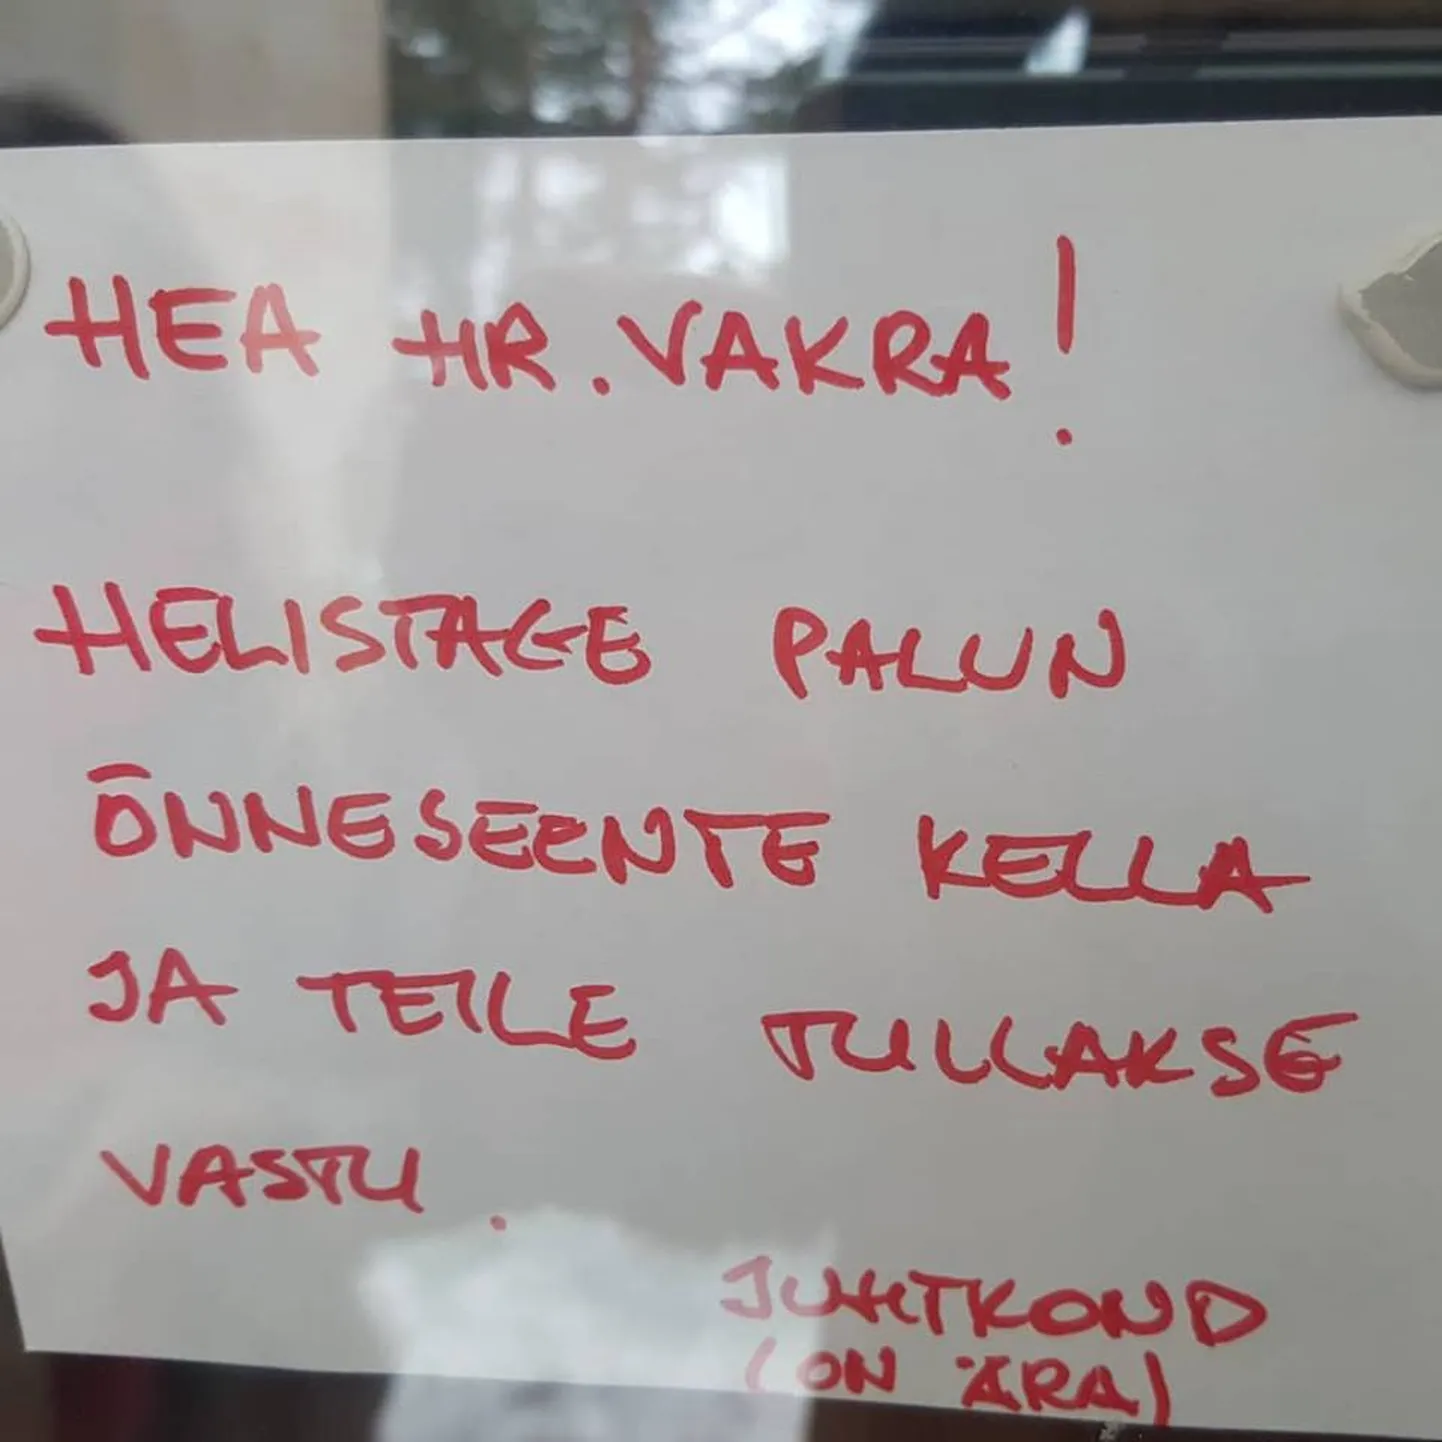 HEA HR. VAKRA!
HELISTAGE PALUN
ÕNNESEENTE KELLA
JA TEILE TULLAKSE
VASTU.
JUHTKOND
(ON ÄRA)